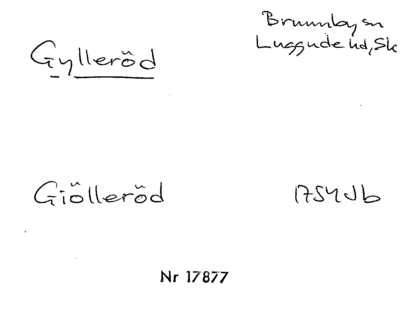 Brunnby sn
Gylleröd
Luggude hd, Sk
Giölleröd
1754 Jb
Nr 17877